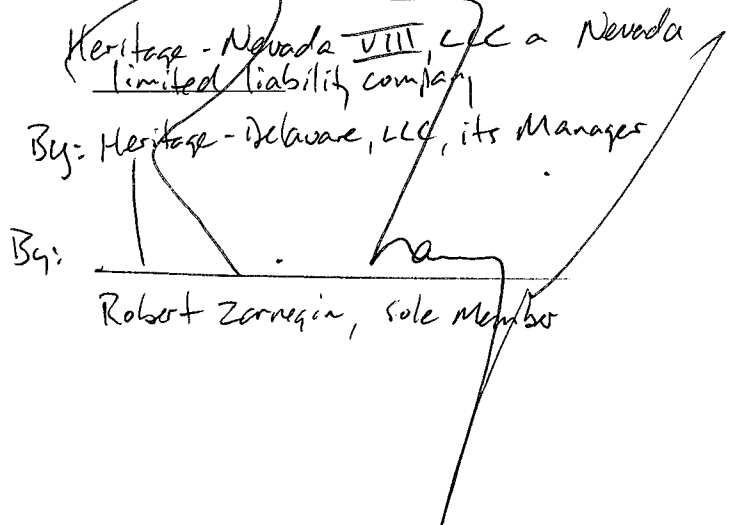 Heritage - Nevada VIII, LLC a Nevada
limited liability company
By: Heritage - Delaware, LLC, its Manager
By:
Robert Zarnegin, Sole Member